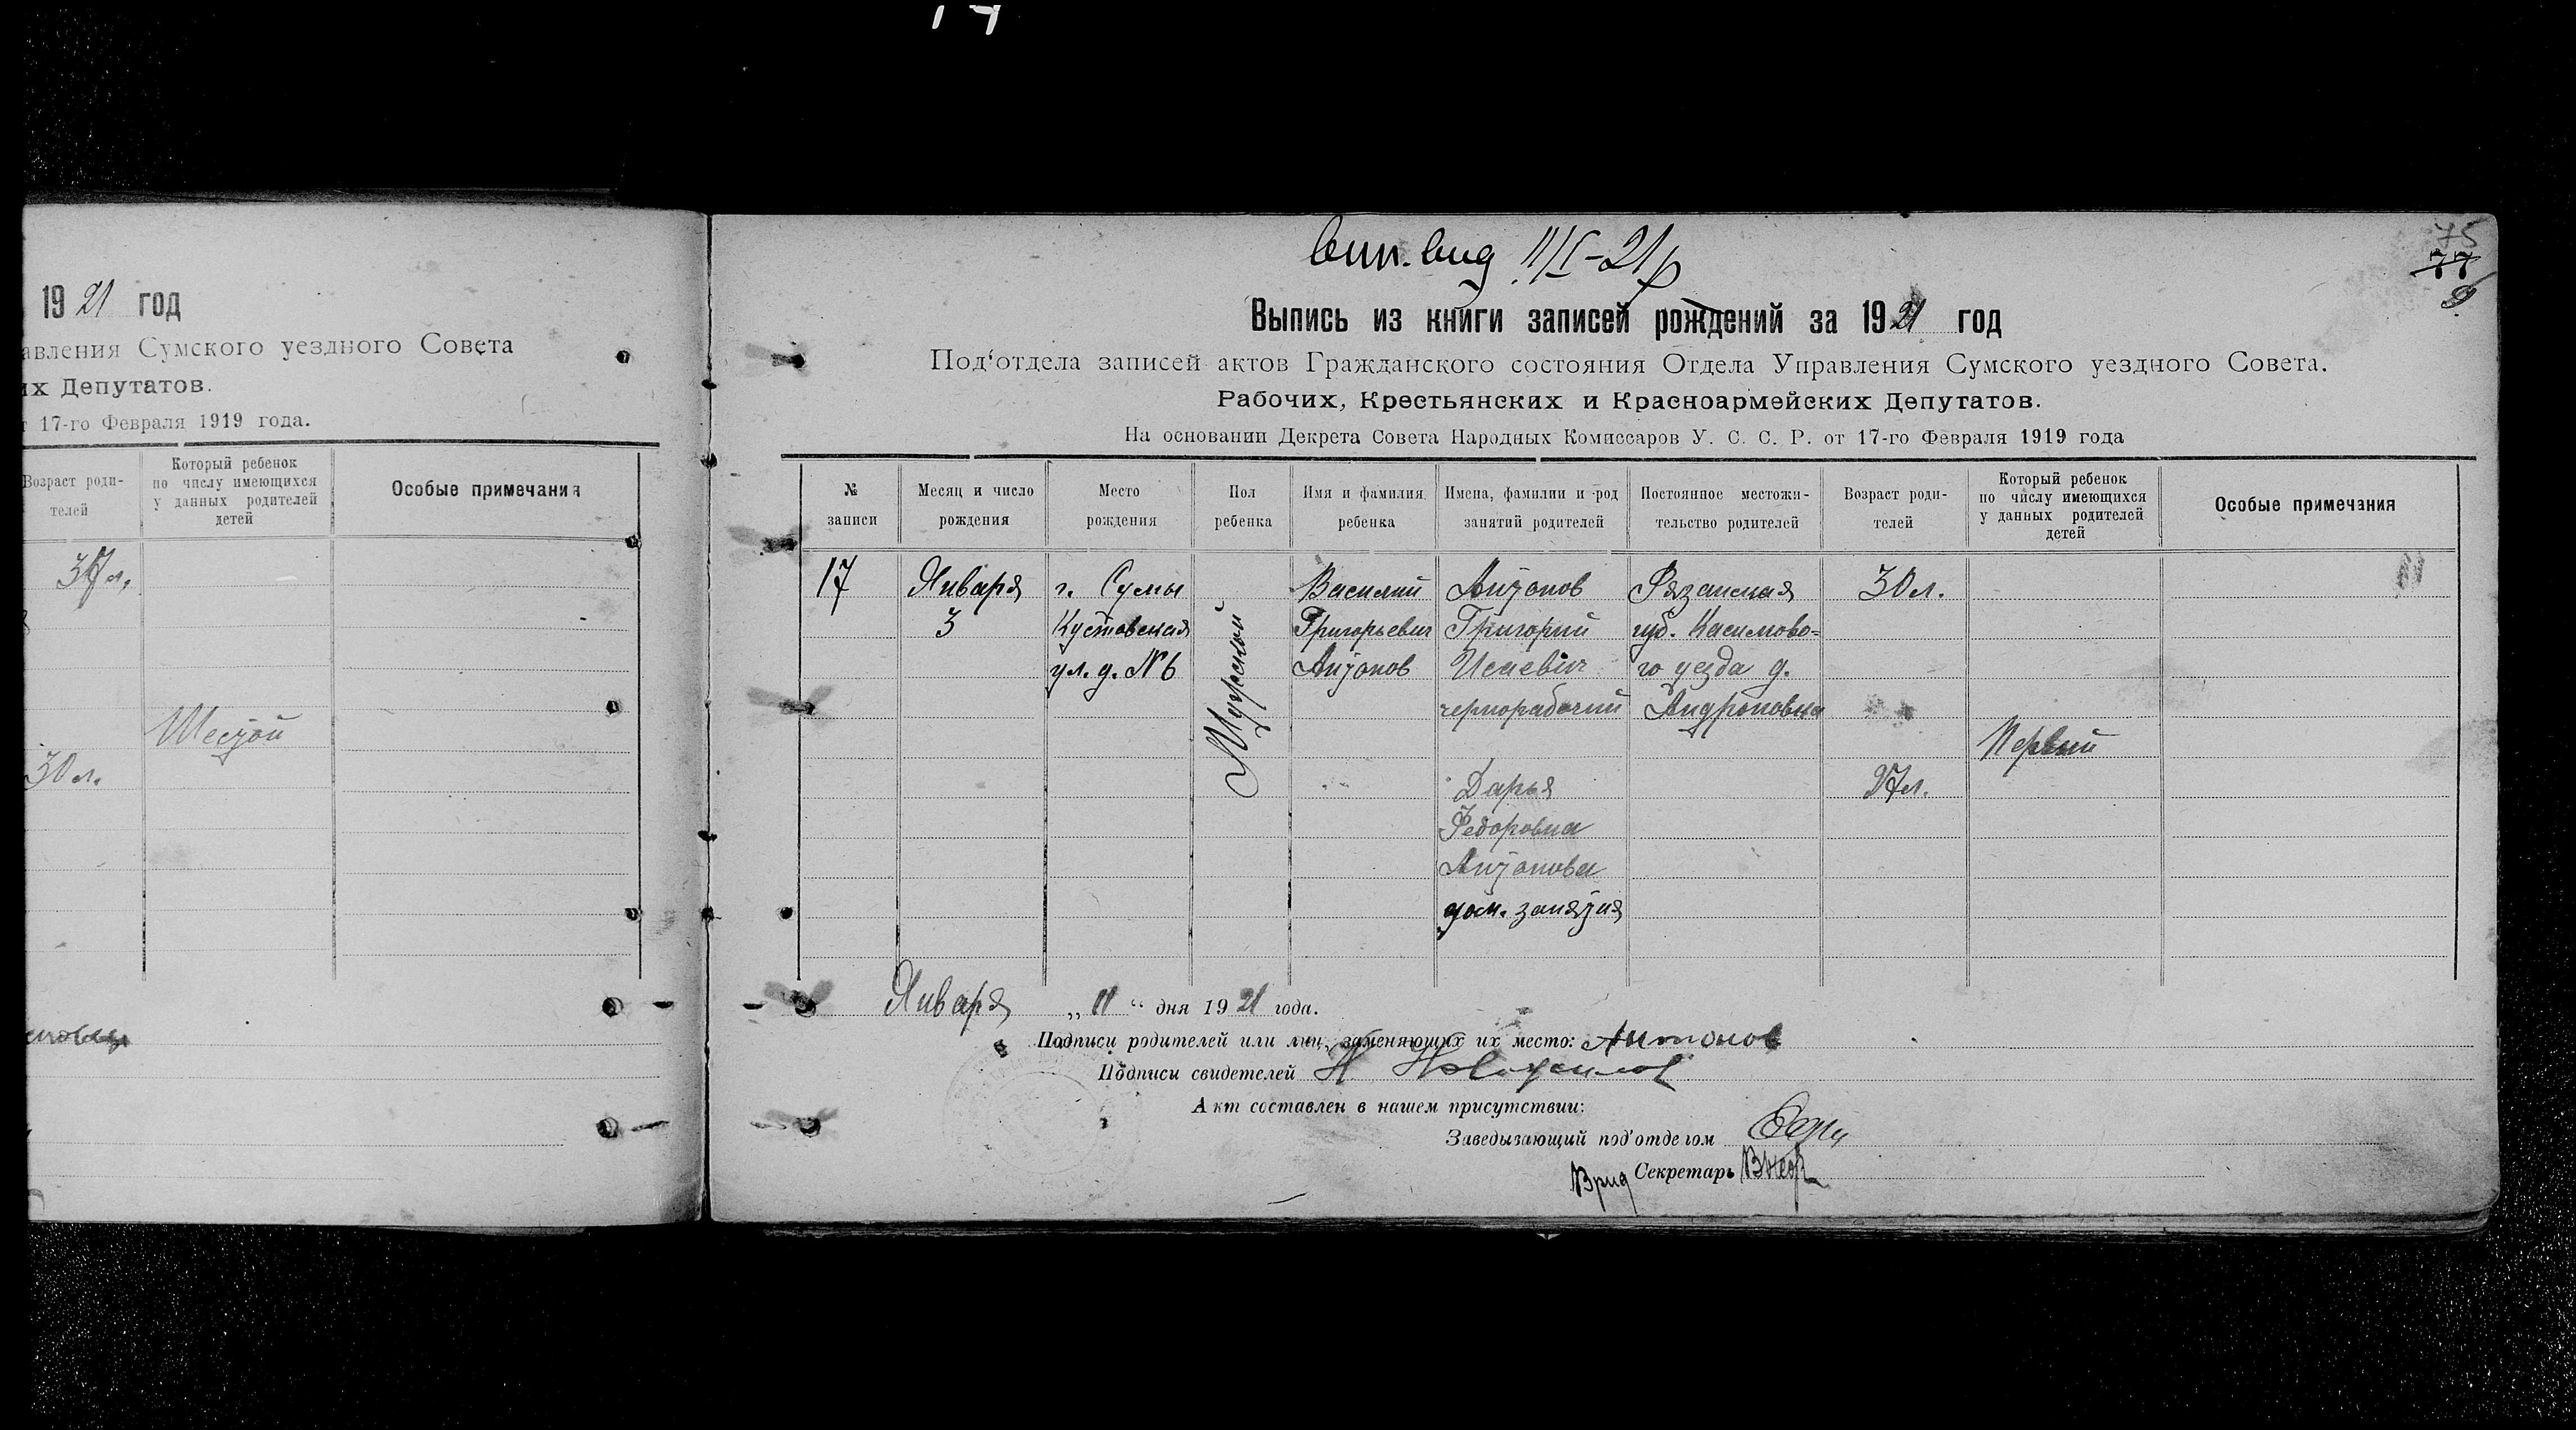 19 21 год
авления Сумского уездного Совета
их Депутатов.
17-го Февраля 1919 года.
Возраст роди-
телей
Который ребенок
по числу имеющихся
у данных родителей
детей
Особые примечания
37 л.
Шестой
30 л.
75
77
9
вып. выд. 11/I-21 р
Выпись из книги записей рождений за 19 21 год
Под'отдела записей актов Гражданского состояния Отдела Управления Сумского уездного Совета.
Рабочих, Крестьянских и Красноармейских Депутатов.
На основании Декрета Совета Народных Комиссаров У. С. С. Р. от 17-го Февраля 1919 года
№
записи
Месяц и число
рождения
Место
рождения
Пол
ребенка
Имя и фамилия
ребенка
Имена, фамилии и род
занятий родителей
Постоянное местожи-
тельство родителей
Возраст роди-
телей
Который ребенок
по числу имеющихся
у данных родителей
детей
Особые примечания
17
Января
3
г. Сумы
Кустовская
ул. д. № 6
Мужской
Василий
Григорьевич
Антонов
Антонов
Григорий
Исаевич
чернорабочий
Дарья
Федоровна
Антонова
дом. занятия
Рязанская
губ. Касимово-
го уезда д.
Андроновка
30 л.
27 л.
Первый
Января „ 11 “ дня 19 21 года.
Подписи родителей или лиц, заменяющих их место: Антонов
Подписи свидетелей Н.
Акт составлен в нашем присутствии:
Заведывающий под'отделом
Врид Секретарь